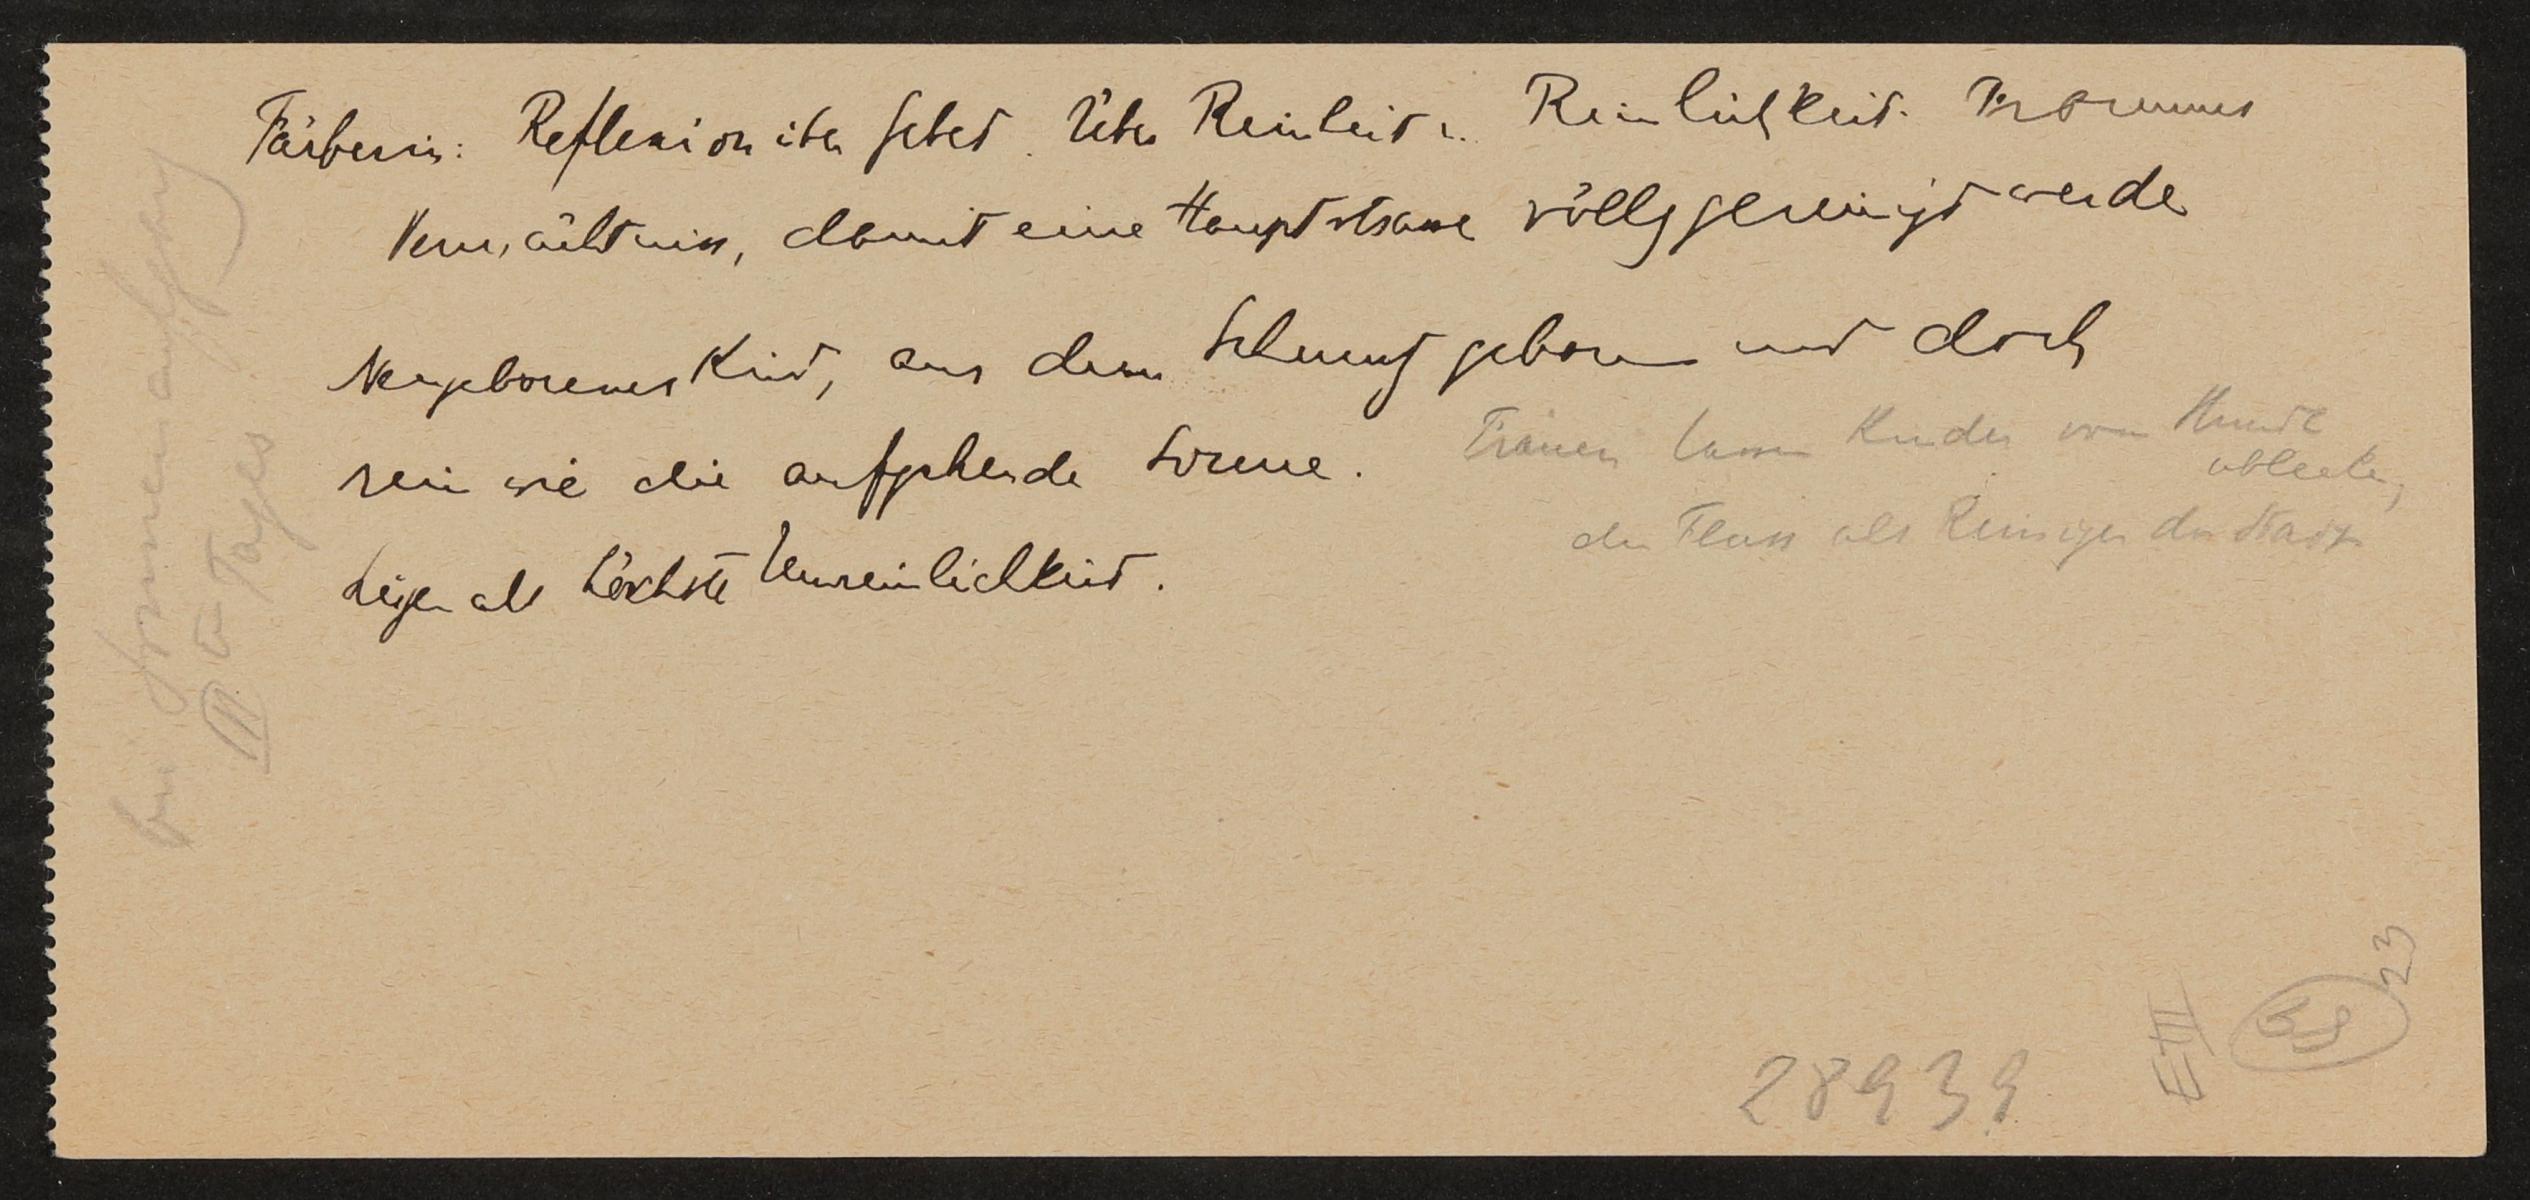 Färberin: Reflexion über Gebet. Über Reinheit u. Reinlichkeit. Frommes
Vermächtniss, damit eine Hauptstrasse völlig gereinigt werde
Neugeborenes Kind, aus dem Schmutz geboren und doch
rein wie die aufgehende Sonne.
Frauen lassen Kinder vom Hunde
ablecken,
der Fluss als Reiniger der Stadt
Lügen als höchste Unreinlichkeit.
bei Sonnenaufgang
III Tages
28939
E III
23